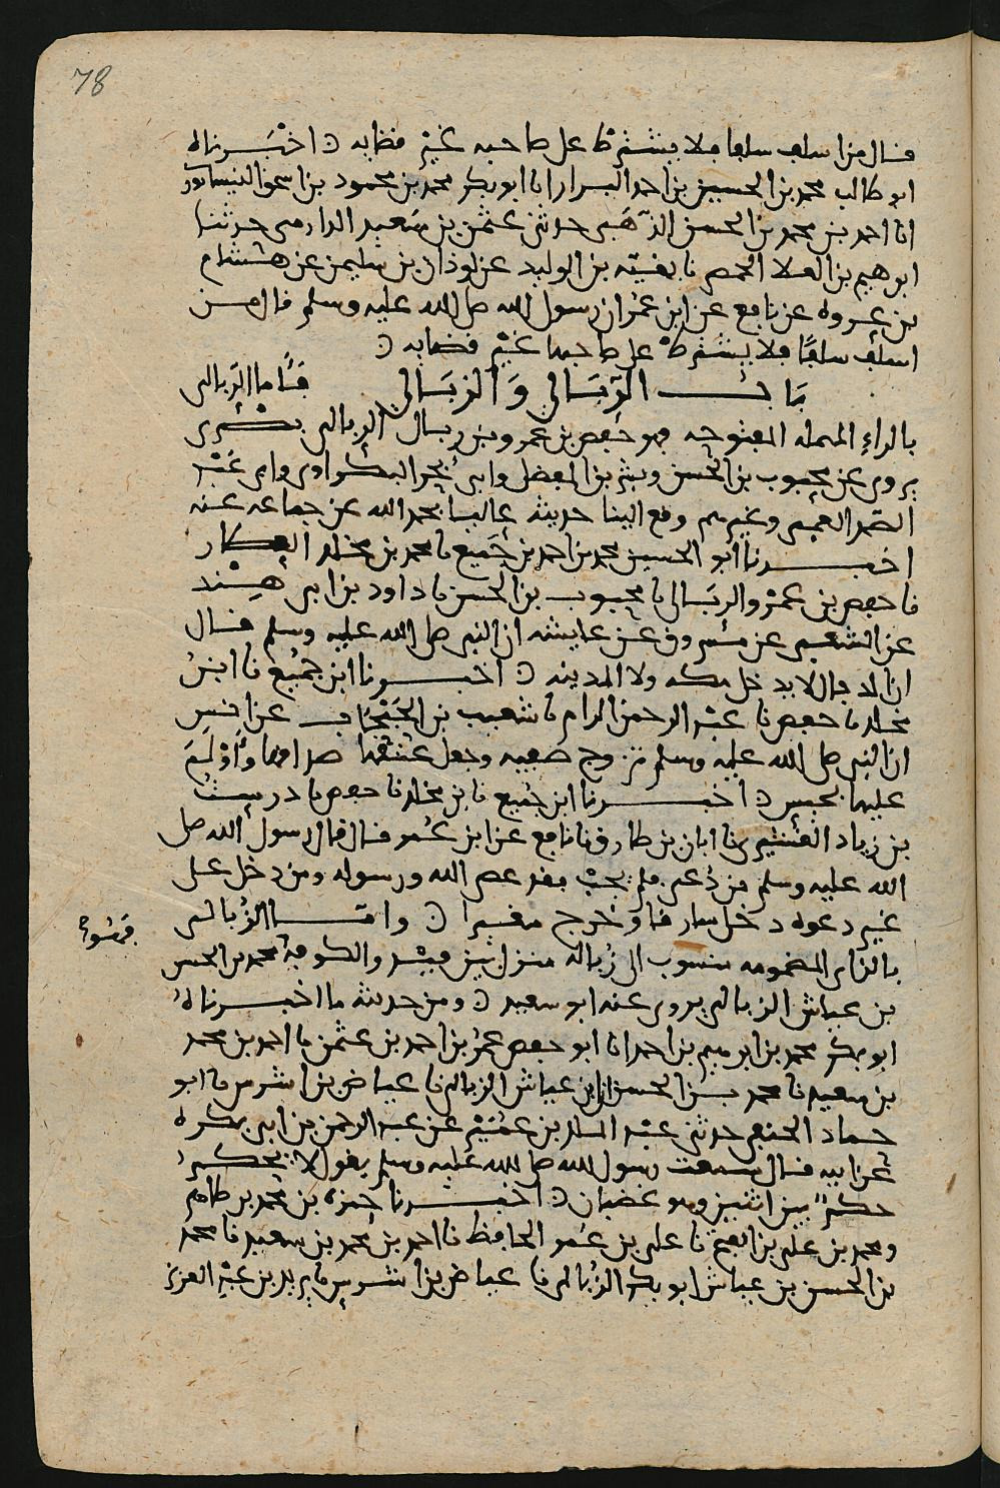 78
قال من اسلف سلفا فلا يشترط على صاحبه غير قضايه اخبرناه
ابو طالب محمد بن الحسين بن احمد البزار انا ابو بكر محمد بن محمود بن اسحق النيسابوري
انا احمد بن محمد بن الحسن الذهبي حدثني عثمن بن سعيد الدارمي حدثنا
ابرهيم بن العلا الحمصي نا بقية بن الوليد عن لوذان بن سليمن عن هشام
بن عروه عن نافع عن ابن عمر ان رسول الله صلى الله عليه وسلم قال من
اسلف سلفا فلا يشترط على صاحبها غير قضايه
باب الرّبَالي وَالزبَالي قال اما الرّبالي
بالراء المهمله المفتوحه فهو حفص بن عمرو بن ربال الربالي بصري
يروي عن محبوب بن الحسن وبشر بن المفضل وابي بحر البكراوي وابي عبد
الصمد العمي وغيرهم وقع الينا حديثه عاليا بحمد الله عن جماعه عنه
اخبرنا ابو الحسين محمد بن احمد بن جميع نا محمد بن مخلد العطار
نا حفص بن عمرو الربَالي نا محبوب بن الحسن نا داود بن ابي هند
عن الشعبي عن مسروق عن عايشه ان النبي صلى الله عليه وسلم قال
ان الدجال لا يدخل مكه ولا المدينه اخبرنا ابن جميع نا ابن
مخلد نا حفص نا عبد الرحمن الرام نا شعيب بن الحبحاب عن انس
ان النبي صلى الله عليه وسلم تزوج صفيه وجعل عتقها صداقها وَاوْلمَ
عليها بحيس اخبرنا ابن جميع نا بن مخلد نا حفص نا درست
بن زياد القشيري نا ابان بن طارق نا نافع عن ابن عمر قال قال رسول الله صلى
الله عليه وسلم من دُعي فلم يجب فقد عصى الله ورسوله ومن دخل على
غير دعوه دخل سارقا وخرج مغيرا واما الزُبالي
بالزاي المضمومه منسوب الى زُباله منزل بين فيد والكوفه محمد بن الحسن
بن عياش الزبالي يروي عنه ابو سعيد ومن حديثه ما اخبرناهُ
ابو بكر محمد بن ابرهيم بن احمد انا ابو حفص عمر بن احمد بن عثمن نا احمد بن محمد
بن سعيد نا محمد بن الحسن بن عياش الزبالي نا عياض بن اشرس نا ابو
حماد الحنفي حدثني عبد الملك بن عمير عن عبد الرحمن بن ابي بكره
عن ابيه قال سمعت رسول الله صلى الله عليه وسلم يقول لا يحكم
حكم بين اثنين وهو غضبان اخبرنا حمزه بن محمد بن طاهر
ومحمد بن علي بن الفتح نا علي بن عمر الحافظ نا احمد بن محمد بن سعيد نا محمد
بن الحسن بن عياش ابو بكر الزُبالي نا عياض بن اشرس نا يزيد بن عبد العزيز